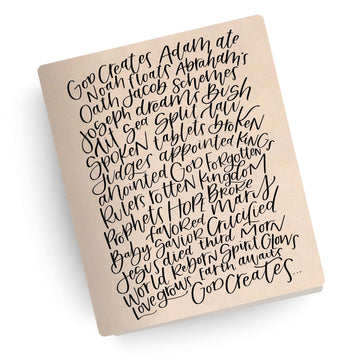 God Creates Adam ate
Noah floats Abraham's
Oath Jacob Schemes
Joseph dreams Bush
lit Sea Split law
Spoken tablets broken
Judges appointed Kings
anointed God Forgotten
Rulers rotten Kingdom
Prophets Hope Broke
favored Mary
Baby Savior Crucified
Jesus died third Morn
World Reborn Spirit Glows
Love grows Earth awaits
God Creates...